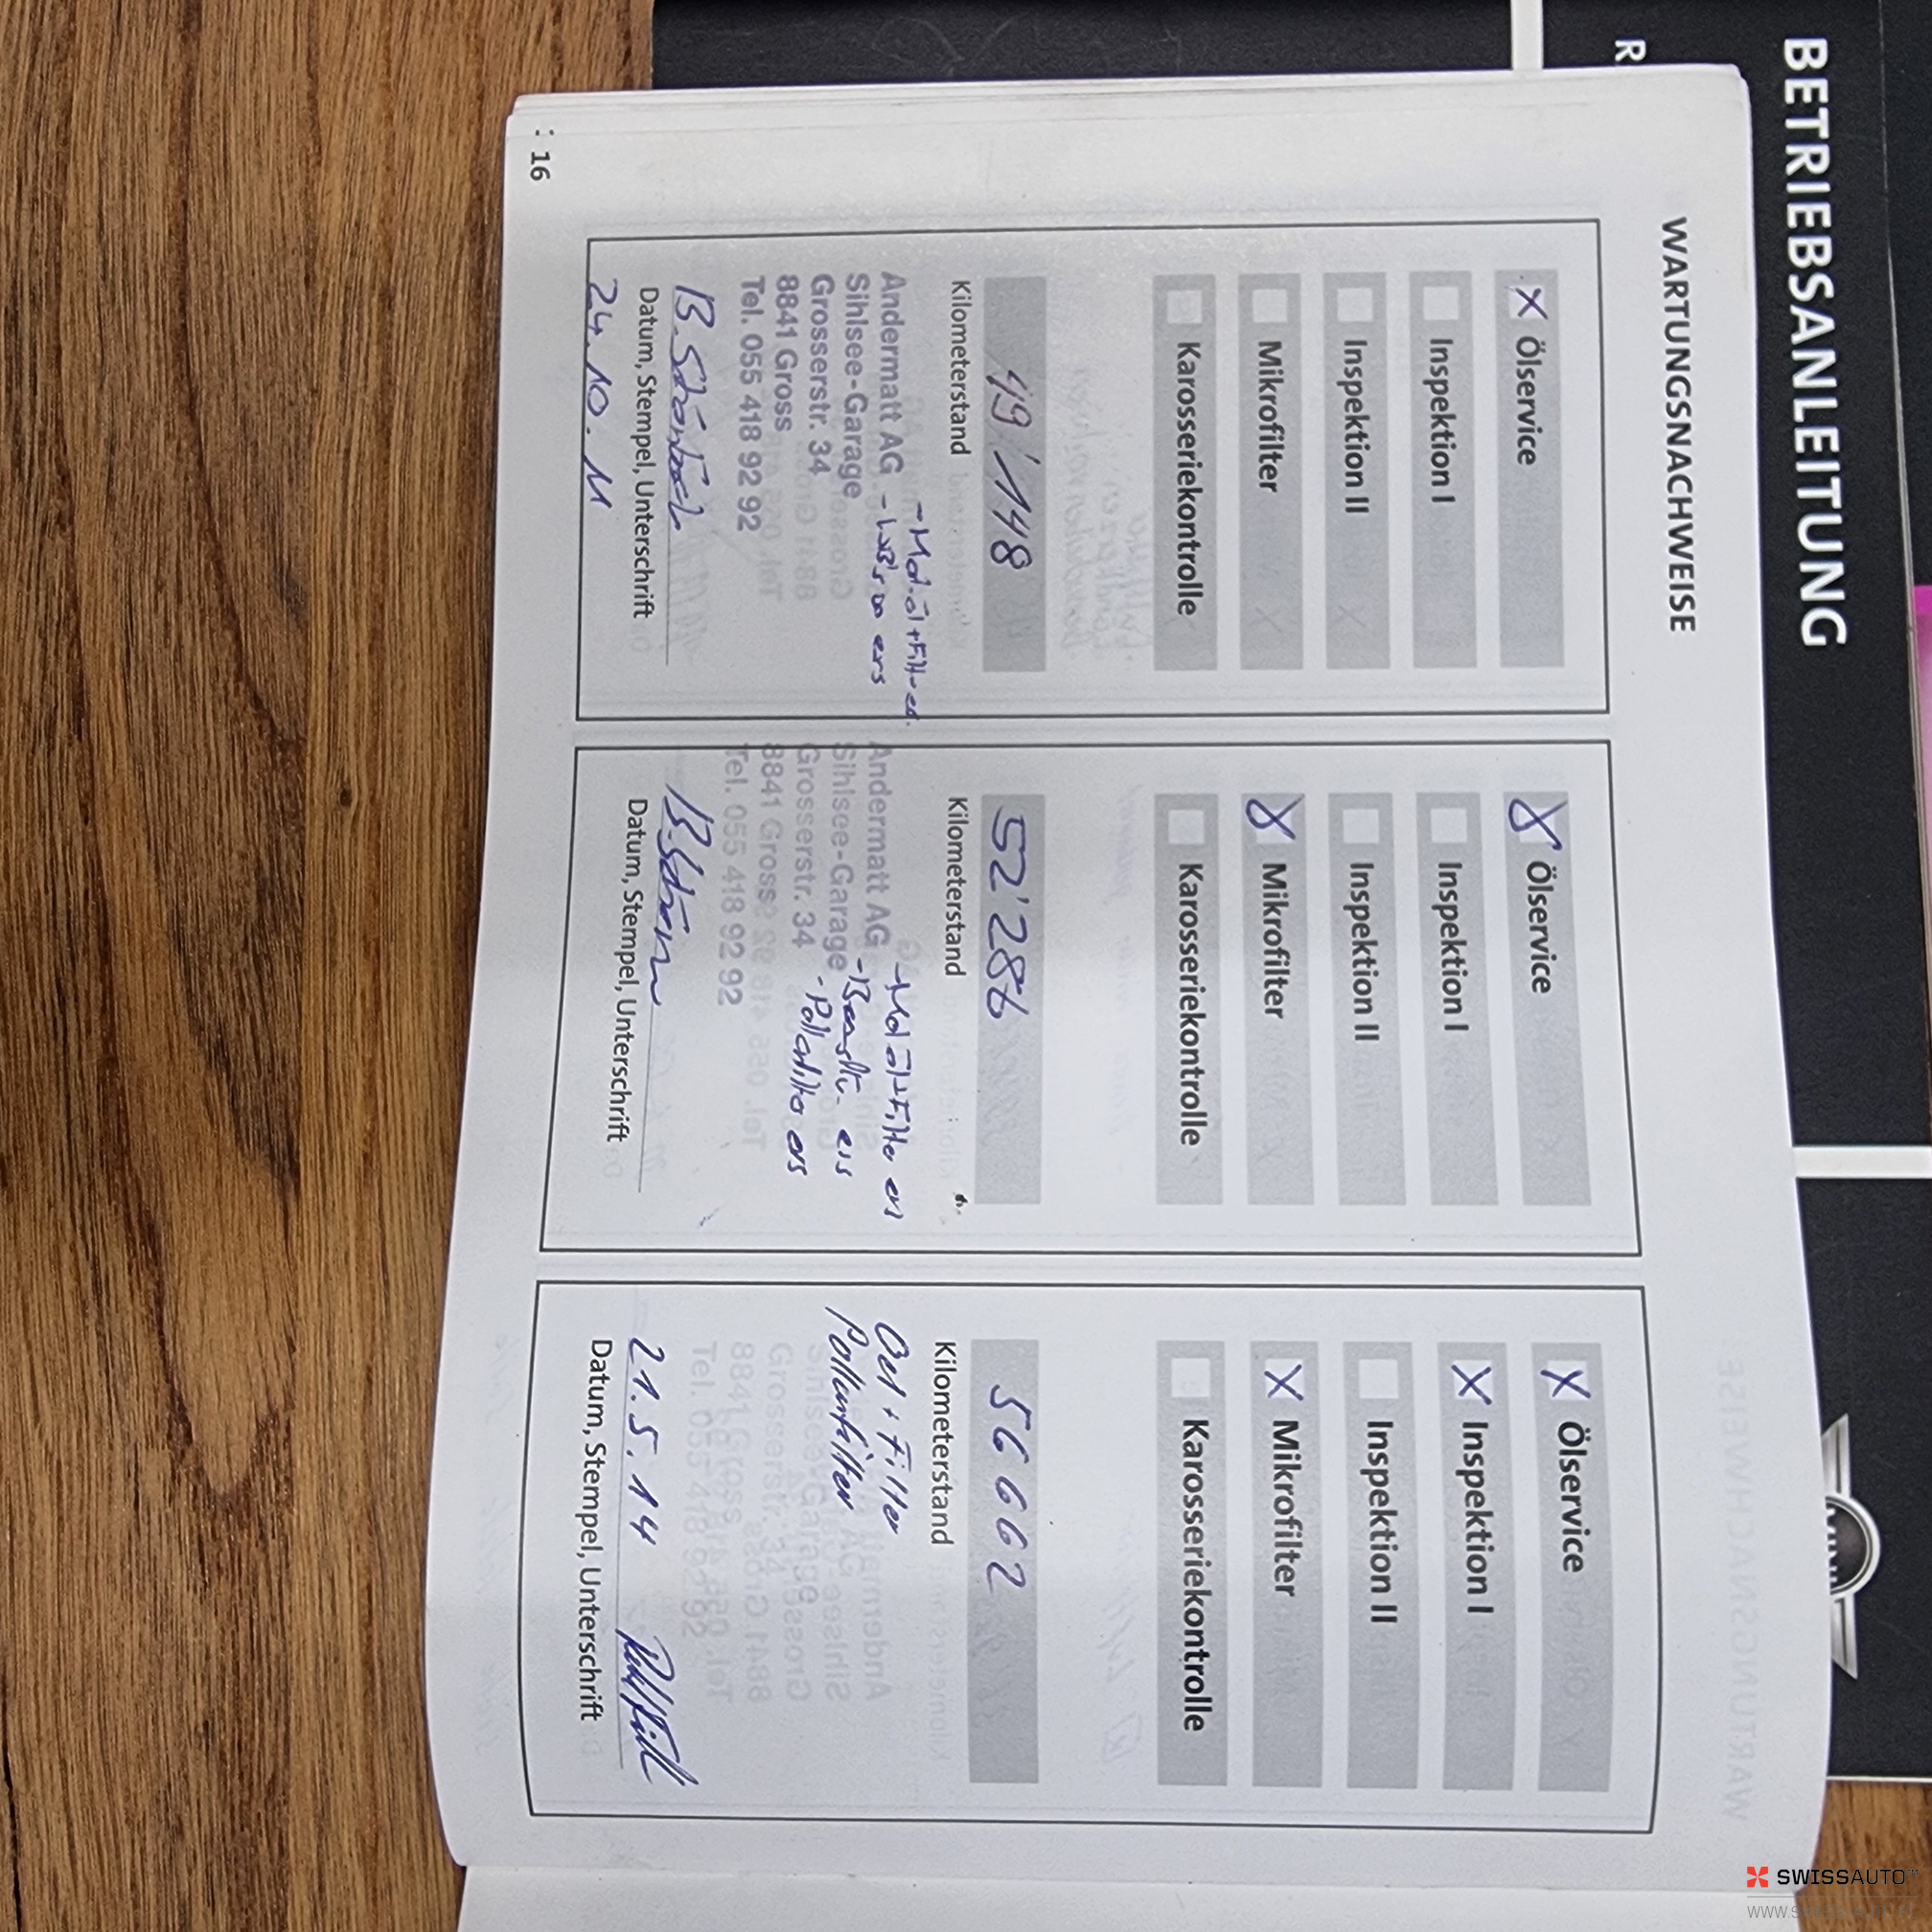 BETRIEBSANLEITUNG
R
WARTUNGSNACHWEISE
X Ölservice
Inspektion I
Inspektion II
Mikrofilter
Karosseriekontrolle
49'148
Kilometerstand
- Mot.öl + Filter
Andermatt AG
Sihlsee-Garage
Grosserstr. 34
8841 Gross
Tel. 055 418 92 92
Datum, Stempel, Unterschrift
24.10.11
X Ölservice
Inspektion I
Inspektion II
X Mikrofilter
Karosseriekontrolle
52'286
Kilometerstand
- Mot öl + Filter ers
Andermatt AG
Sihlsee-Garage
Grosserstr. 34
- Pollenfilter ers
8841 Gross
Tel. 055 418 92 92
Datum, Stempel, Unterschrift
X Ölservice
X Inspektion I
Inspektion II
X Mikrofilter
Karosseriekontrolle
56662
Kilometerstand
Oel + Filter
Pollenfilter
21.5.14
Datum, Stempel, Unterschrift
: 16
SWISSAUTO